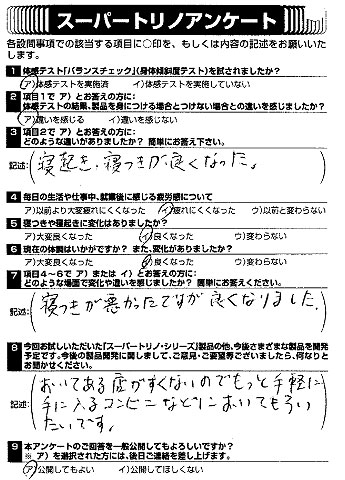 スーパートリノアンケート
各設問事項での該当する項目に○印を、もしくは内容の記述をお願いいた
します。
1 体感テスト「バランスチェック」(身体傾斜度テスト)を試されましたか?
ア)体感テストを実施済 イ)体感テストを実施していない
2 項目1で ア) とお答えの方に:
体感テストの結果、製品を身につける場合とつけない場合との違いを感じましたか?
ア)違いを感じる イ)違いを感じない
3 項目2で ア) とお答えの方に:
どのような違いがありましたか? 簡単にお答え下さい。
記述: (寝起き、寝つきが良くなった。)
4 毎日の生活や仕事中、就業後に感じる疲労感について
ア)以前より大変疲れにくくなった イ)疲れにくくなった ウ)以前と変わらない
5 寝つきや寝起きに変化はありましたか?
ア)大変良くなった イ)良くなった ウ)変わらない
6 現在の体調はいかがですか? また、変化がありましたか?
ア)大変良くなった イ)良くなった ウ)変わらない
7 項目4〜6で ア) または イ) とお答えの方に:
どのような場面で変化や違いを感じましたか? 簡単にお答えください。
記述: (寝つきが悪かったですが良くなりました。)
8 今回お試しいただいた「スーパートリノ・シリーズ」製品の他、今後さまざまな製品を開発
予定です。今後の製品開発に関しまして、ご意見・ご要望等ございましたら、何なりと
お聞かせください。
記述: (おいてある店がすくないのでもっと手軽に
手に入るコンビニなどにおいてもらい
たいです。)
9 本アンケートのご回答を一般公開してもよろしいですか?
※ ア) を選択された方には、後日ご連絡を差し上げます。
ア)公開してもよい イ)公開してほしくない